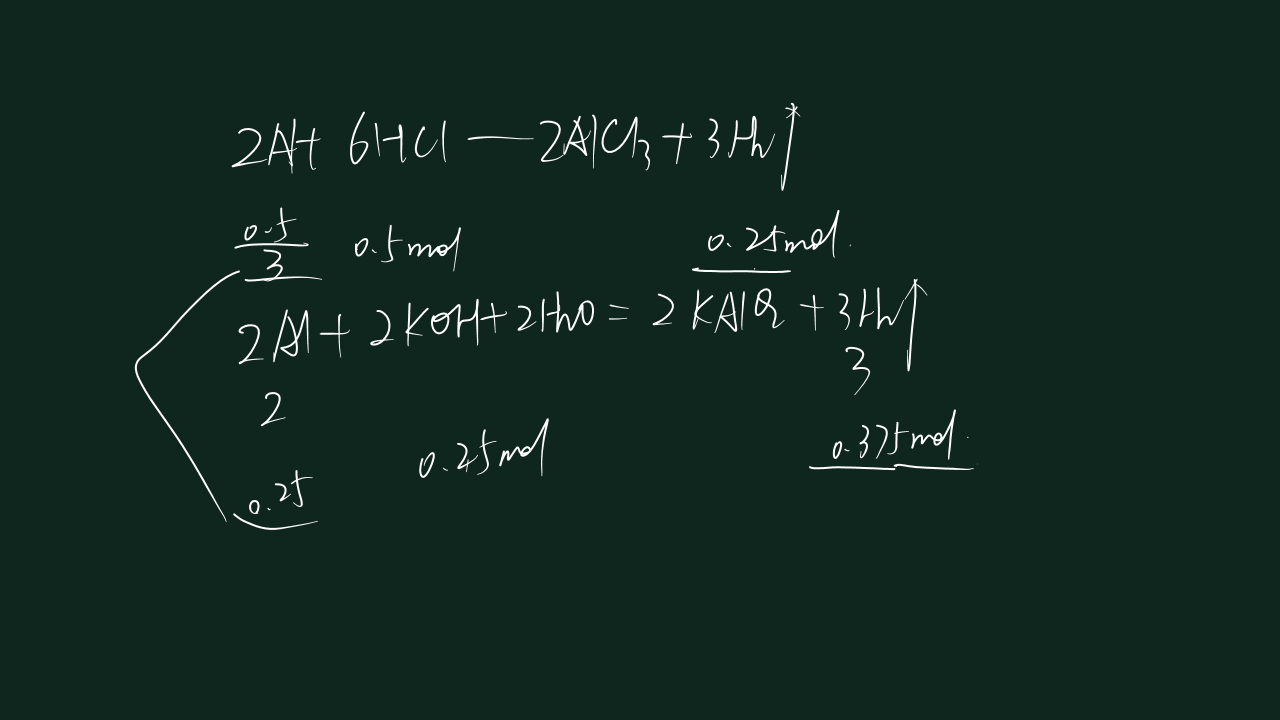 2Al + 6HCl — 2AlCl₃ + 3H₂↑
0.5/3 0.5mol 0.25mol.
2Al + 2KOH + 2H₂O = 2KAlO₂ + 3H₂↑
2 3
0.25mol 0.375mol.
0.25